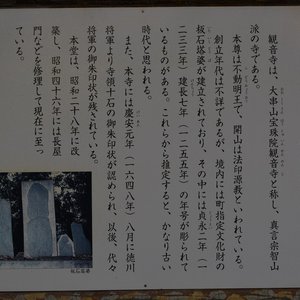 観音寺は、大串山宝珠院観音寺と称し、真言宗智山
派の寺である。
本尊は不動明王で、開山は法印源教といわれている。
創立年代は不詳であるが、境内には町指定文化財の
板石塔婆が建立されており、その中には貞永二年（一
二三三年）建長七年（一二五五年）の年号が彫られて
いるものがある。これらから推定すると、かなり古い
時代と思われる。
また、本寺には慶安元年（一六四八年）八月に徳川
将軍より寺領十石の御朱印状が認められ、以後、代々
将軍の御朱印状が残されている。
本堂は、昭和二十八年に改
築し、昭和四十六年には長屋
門などを修理して現在に至っ
ている。
板石塔婆